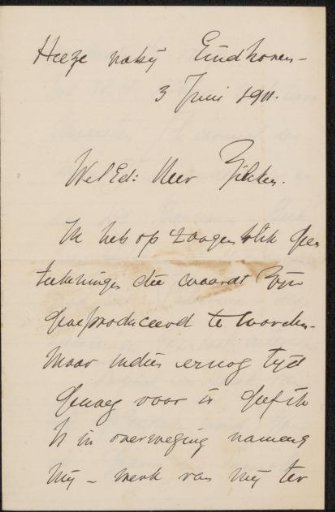 Heeze nabij Eindhoven –
3 Juni 1911.
WelEd: Heer Zilcken.
Ik heb op 't oogenblik geen
teekeningen die waard zijn
gereproduceerd te worden.
Maar indien er nog tijd
genoeg voor is geef ik
U in overweging namens
mij – werk van mij ter